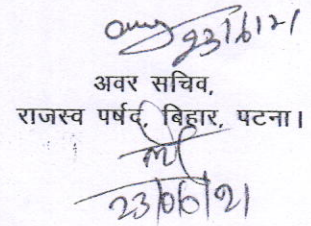 23/6/21
अवर सचिव,
राजस्व पर्षद, बिहार, पटना।
23/06/21